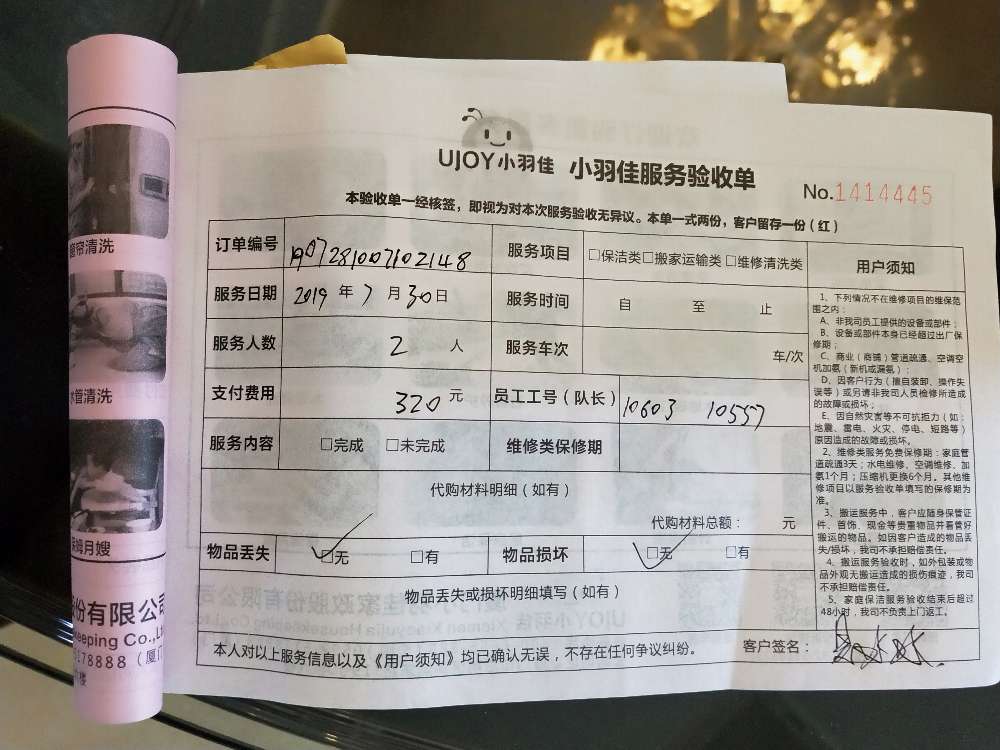 UJOY小羽佳 小羽佳服务验收单
No.1414445
本验收单一经核签，即视为对本次服务验收无异议。本单一式两份，客户留存一份（红）
订单编号
服务项目 □保洁类□搬家运输类□维修清洗类
服务日期 2019 年 7 月 30 日 服务时间 自 至 止
服务人数 2 人 服务车次 车/次
支付费用 320 元 员工工号（队长） 10603 10557
服务内容 □完成 □未完成 维修类保修期
代购材料明细（如有）
代购材料总额： 元
物品丢失 □无 □有 物品损坏 □无 □有
物品丢失或损坏明细填写（如有）
本人对以上服务信息以及《用户须知》均已确认无误，不存在任何争议纠纷。 客户签名：
用户须知
1、下列情况不在维修项目的维保范
围之内：
A、非我司员工提供的设备或部件；
B、设备或部件本身已经超过出厂保
修期；
C、商业（商铺）管道疏通、空调空
机加氨（新机或漏氨）；
D、因客户行为（擅自装卸、操作失
误等）或另请非我司人员检修所造成
的故障或损坏；
E、因自然灾害等不可抗拒力（如：
地震、雷电、火灾、停电、短路等）
原因造成的故障或损坏。
2、维修类服务免费保修期：家庭管
道疏通3天；水电维修、空调维修、加
氨1个月；压缩机更换6个月。其他维
修项目以服务验收单填写的保修期为
准。
3、搬运服务中，客户应随身保管证
件、首饰、现金等贵重物品并看管好
搬运的物品。如因客户造成的物品丢
失/损坏，我司不承担赔偿责任。
4、搬运服务验收时，如外包装或物
品外观无搬运造成的损伤痕迹，我司
不承担赔偿责任。
5、家庭保洁服务验收结束后超过
48小时，我司不负责上门返工。
窗帘清洗
水管清洗
保姆月嫂
份有限公司
keeping Co.,Lt
5178888（厦门
楼